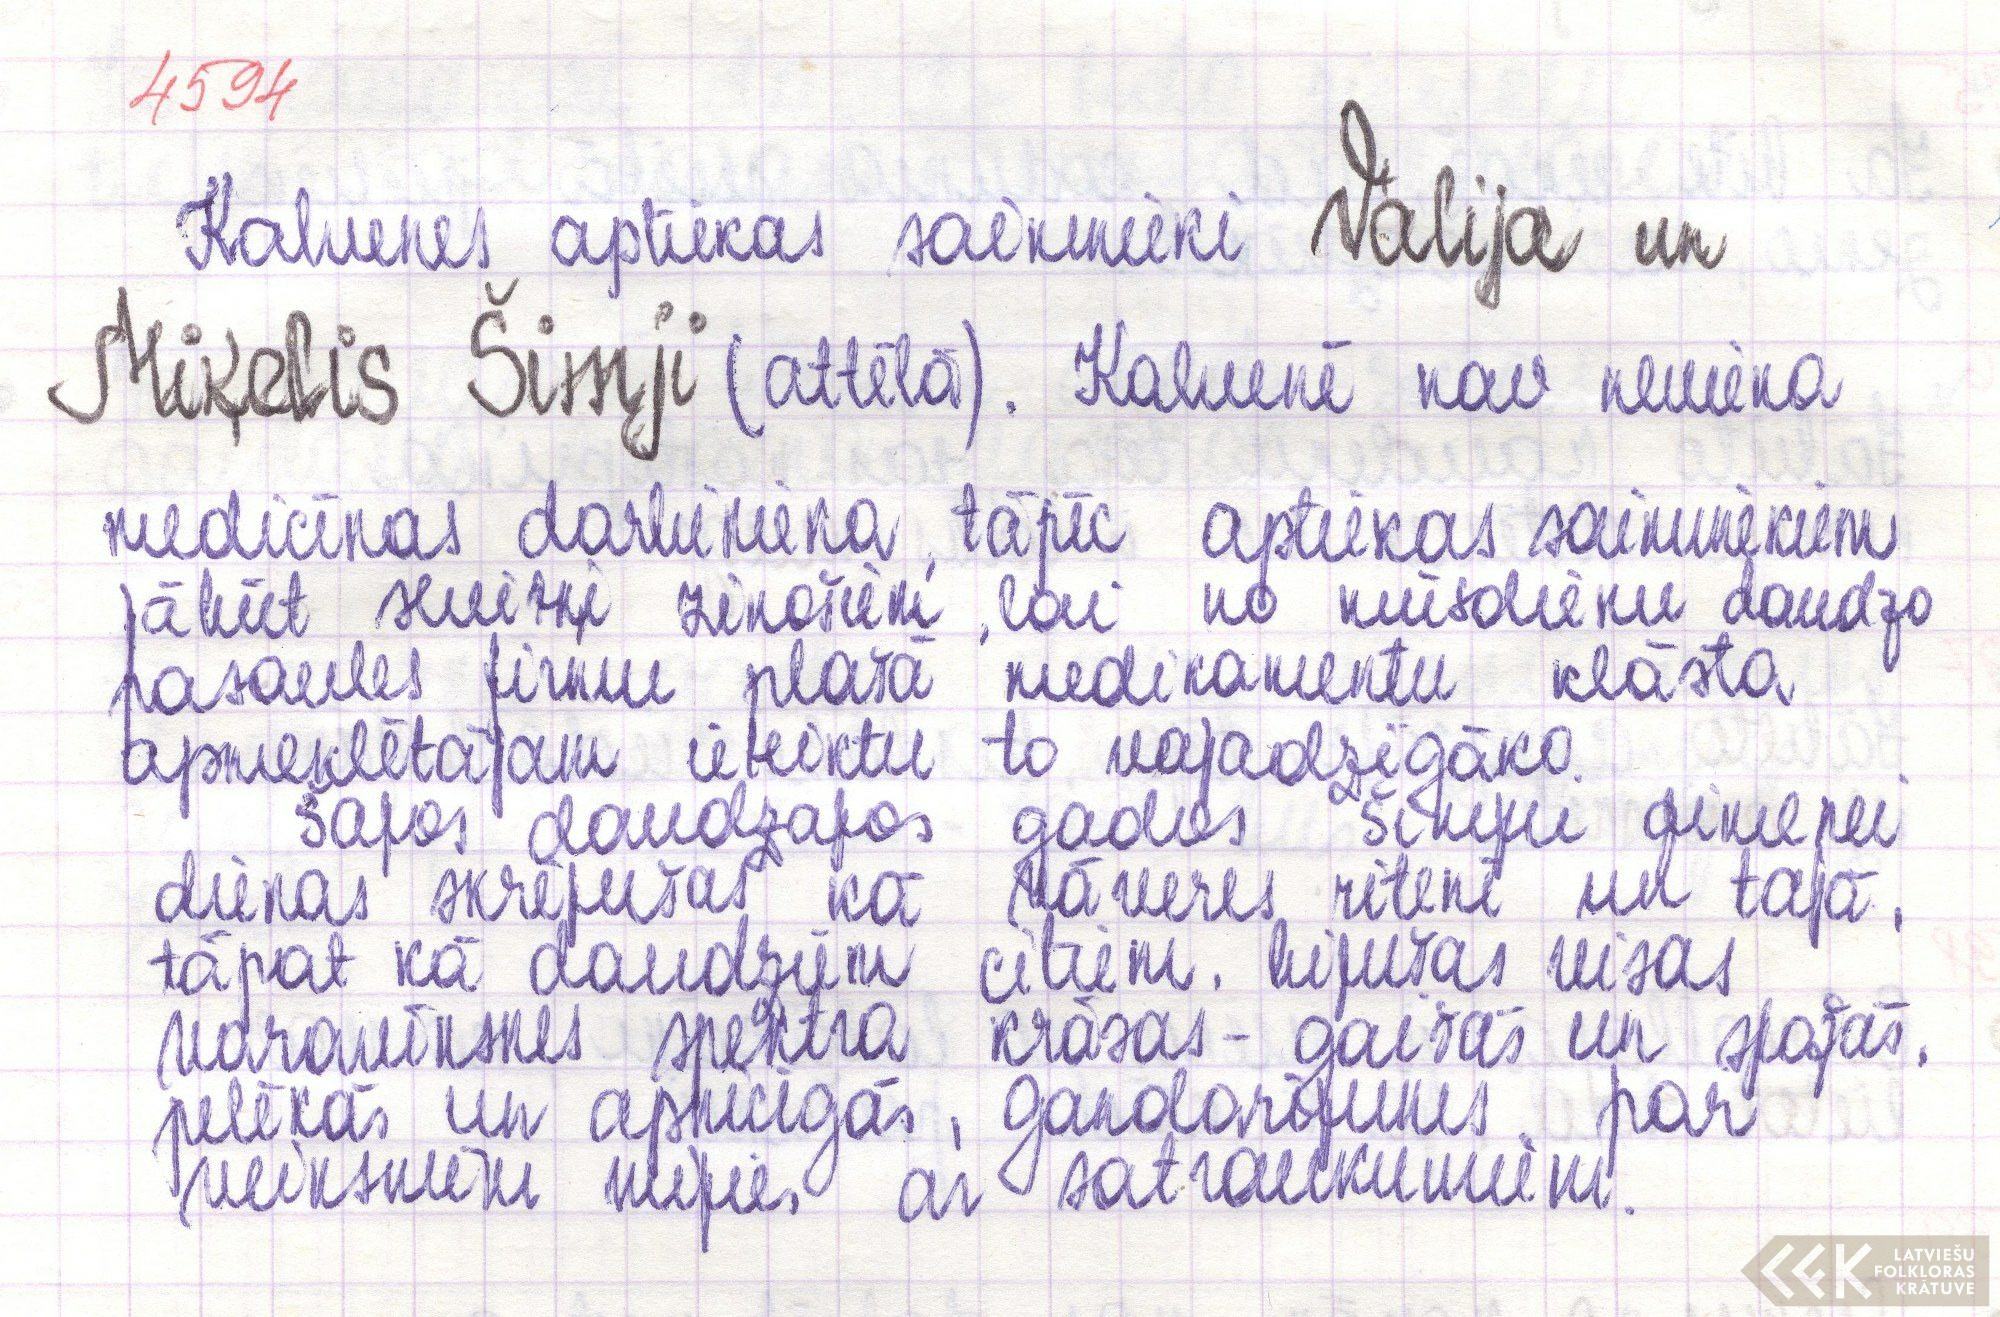 4594
Kalvenes aptiekas saimnieki Valija un
Miķelis Šimņji (attēlā). Kalvenē nav neviena
medicīnas darbinieka, tāpēc aptiekas saimniekiem
jābūt sevišķi zinošiem, lai no mūsdienu daudzo
pasaules firmu plašā medikamentu klāsta
apmeklētājam ieteiktu to vajadzīgāko.
Šajos daudzajos gados Šimņu ģimenei
dienas skrējušas kā vāveres ritenī un tajā,
tāpat kā daudziem citiem, bijušas visas
varavīksnes spektra krāsas - gaišās un spožās,
pelēkās un apnicīgās, gandarījumes par
veiksmēm mijies ar satraukumiem.
LATVIEŠU
FOLKLORAS
KRĀTUVE